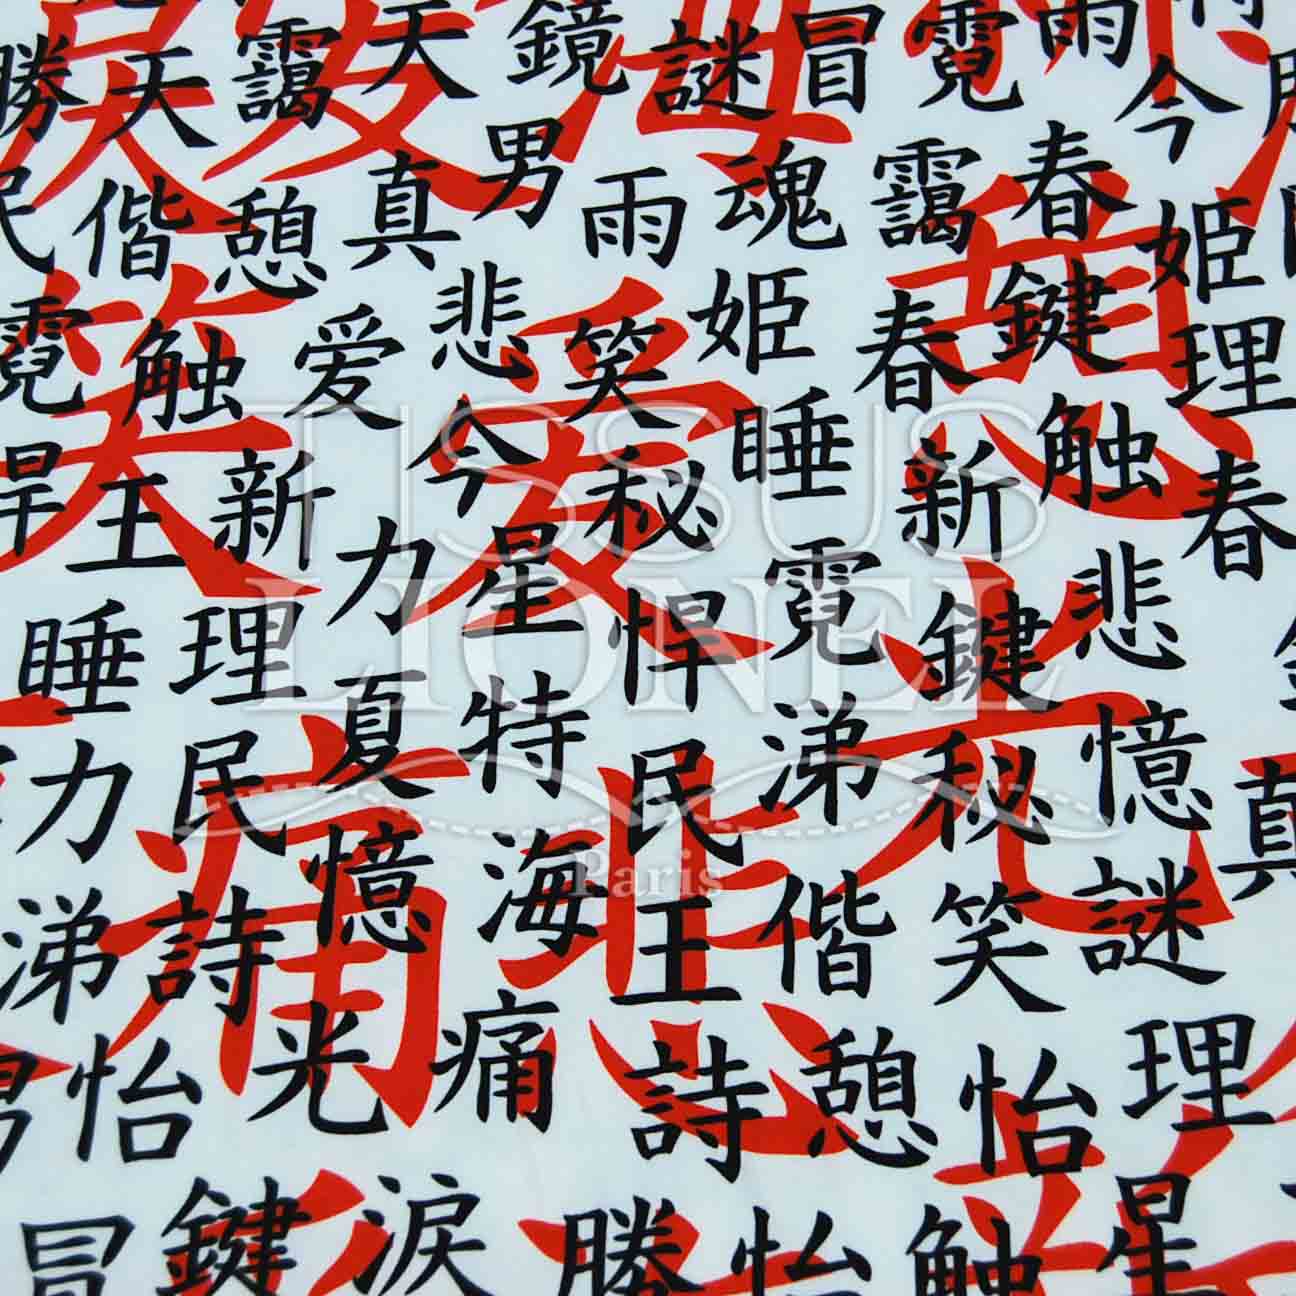 勝 天 靄 天 鏡 謎 冒 霓 雨 今
民 偕 憩 真 男 雨 魂 靄 春 姫
霓 触 爱 悲 笑 姫 春 鍵 理
悍 王 新 今 秘 睡 新 触 春
睡 理 力 星 悍 霓 鍵 悲
力 民 夏 特 民 涕 秘 憶 真
涕 詩 憶 海 王 偕 笑 謎
男 怡 光 痛 詩 憩 怡 理
冒 鍵 涙 勝 怡 触 星
笑 爱 悲 光 痛
TISSUS
LIONEL
Paris